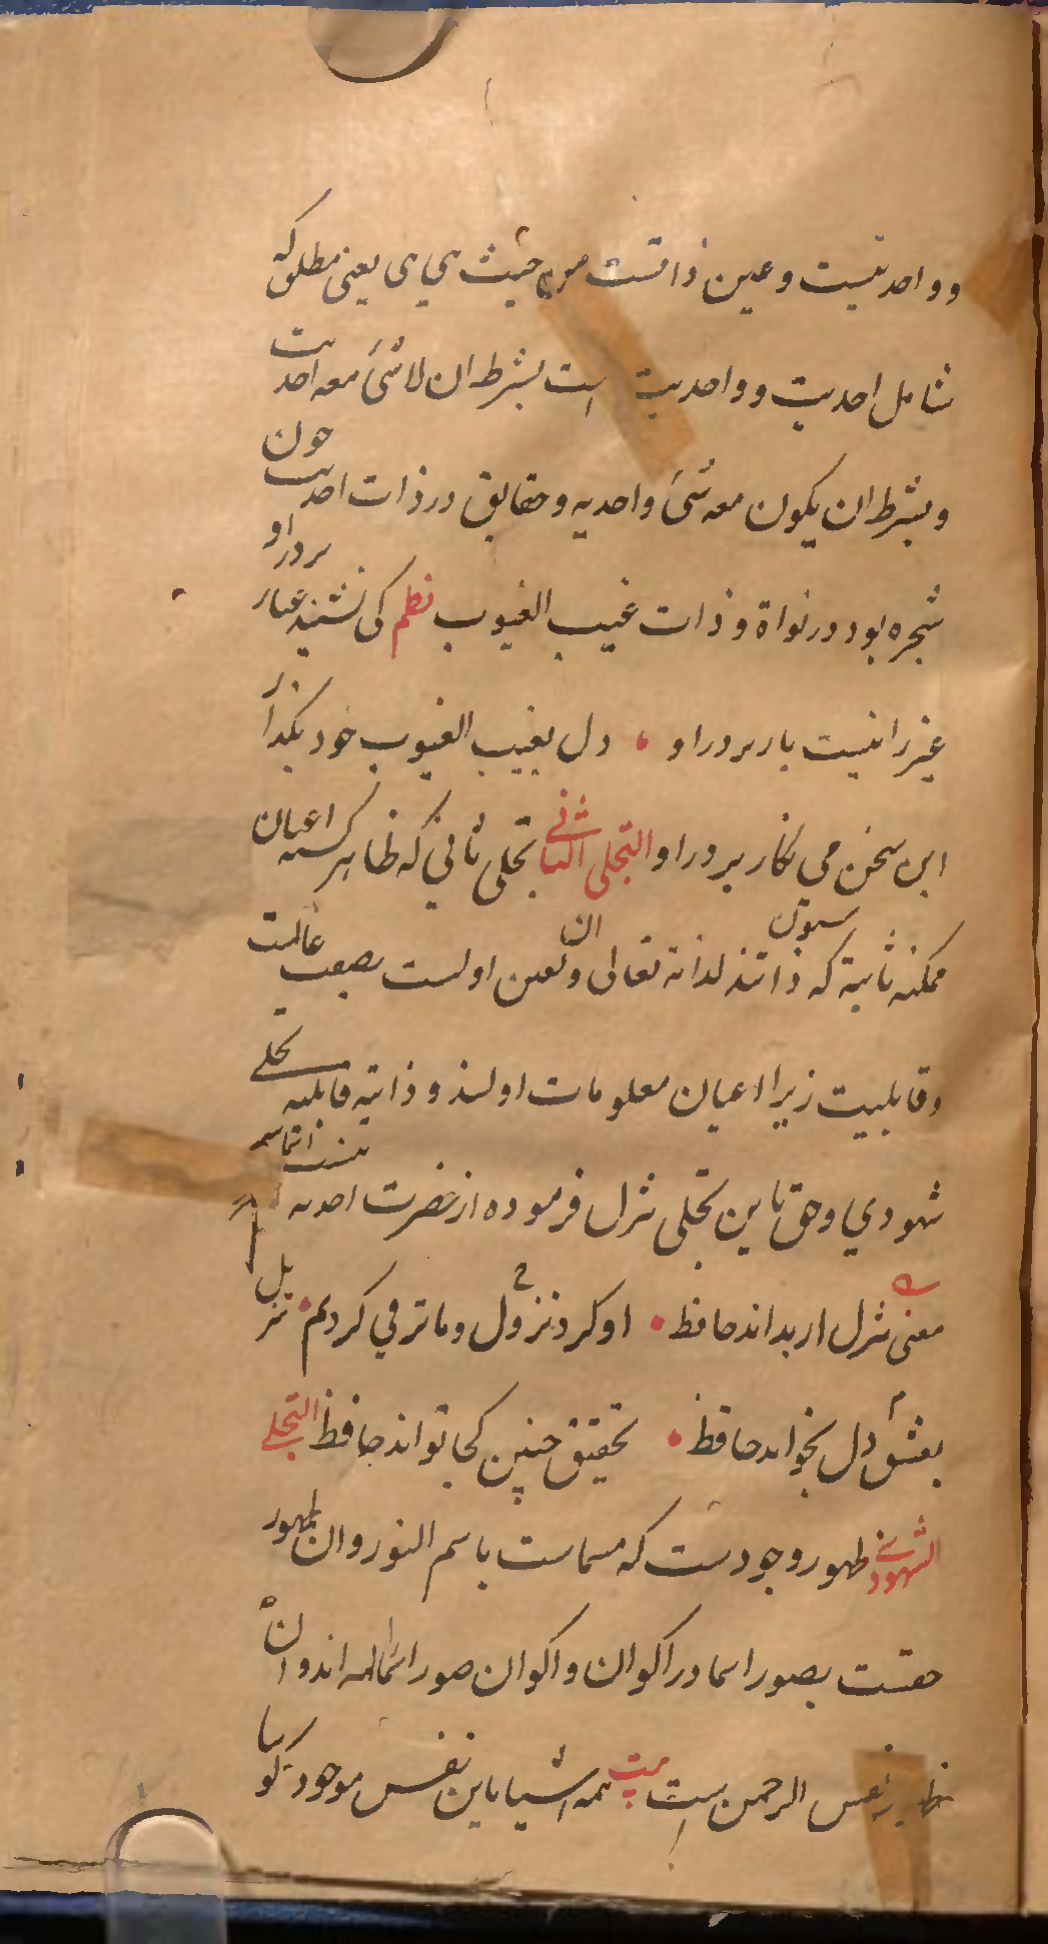 و واحد نیست و عین ذاتست من حیث هی ای یعنی مطلق که
شامل احدیت و واحدیت است بشرط ان لاشئ معه احدیت
و بشرط ان یکون معه شئ واحدیه و حقایق در ذات احدیت چون
شجره بود در نواة و ذات غیب الغیوب نظم کی نشیند غبار بر در او
غیر را نیست بار بر در او • دل بغیب الغیوب خود بگذار
این سخن می نگار بر در او التجلی الثانی تجلی ثانی که ظاهر اعیان
ممکنه ثابته که ذاتند لذاته تعالی و تعین اولست بصفت عالمیت
و قابلیت زیرا اعیان معلومات اولند و ذاتیه قابلیه تجلی
شهودی و حق باین تجلی تنزل فرموده از حضرت احدیه
معنی تنزل ار بداند حافظ • او کرد نزول و ما ترقی کردیم • تنزیل
بعشق دل بخواند حافظ • تحقیق چنین کجا تواند حافظ التجلی
الشهودی ظهور وجودست که مسماست باسم النور و ان ظهور
حقست بصور اسما در اکوان و اکوان صور اسما الهیه اند و ان
نفس الرحمن است بیت همه اشیا باین نفس موجود